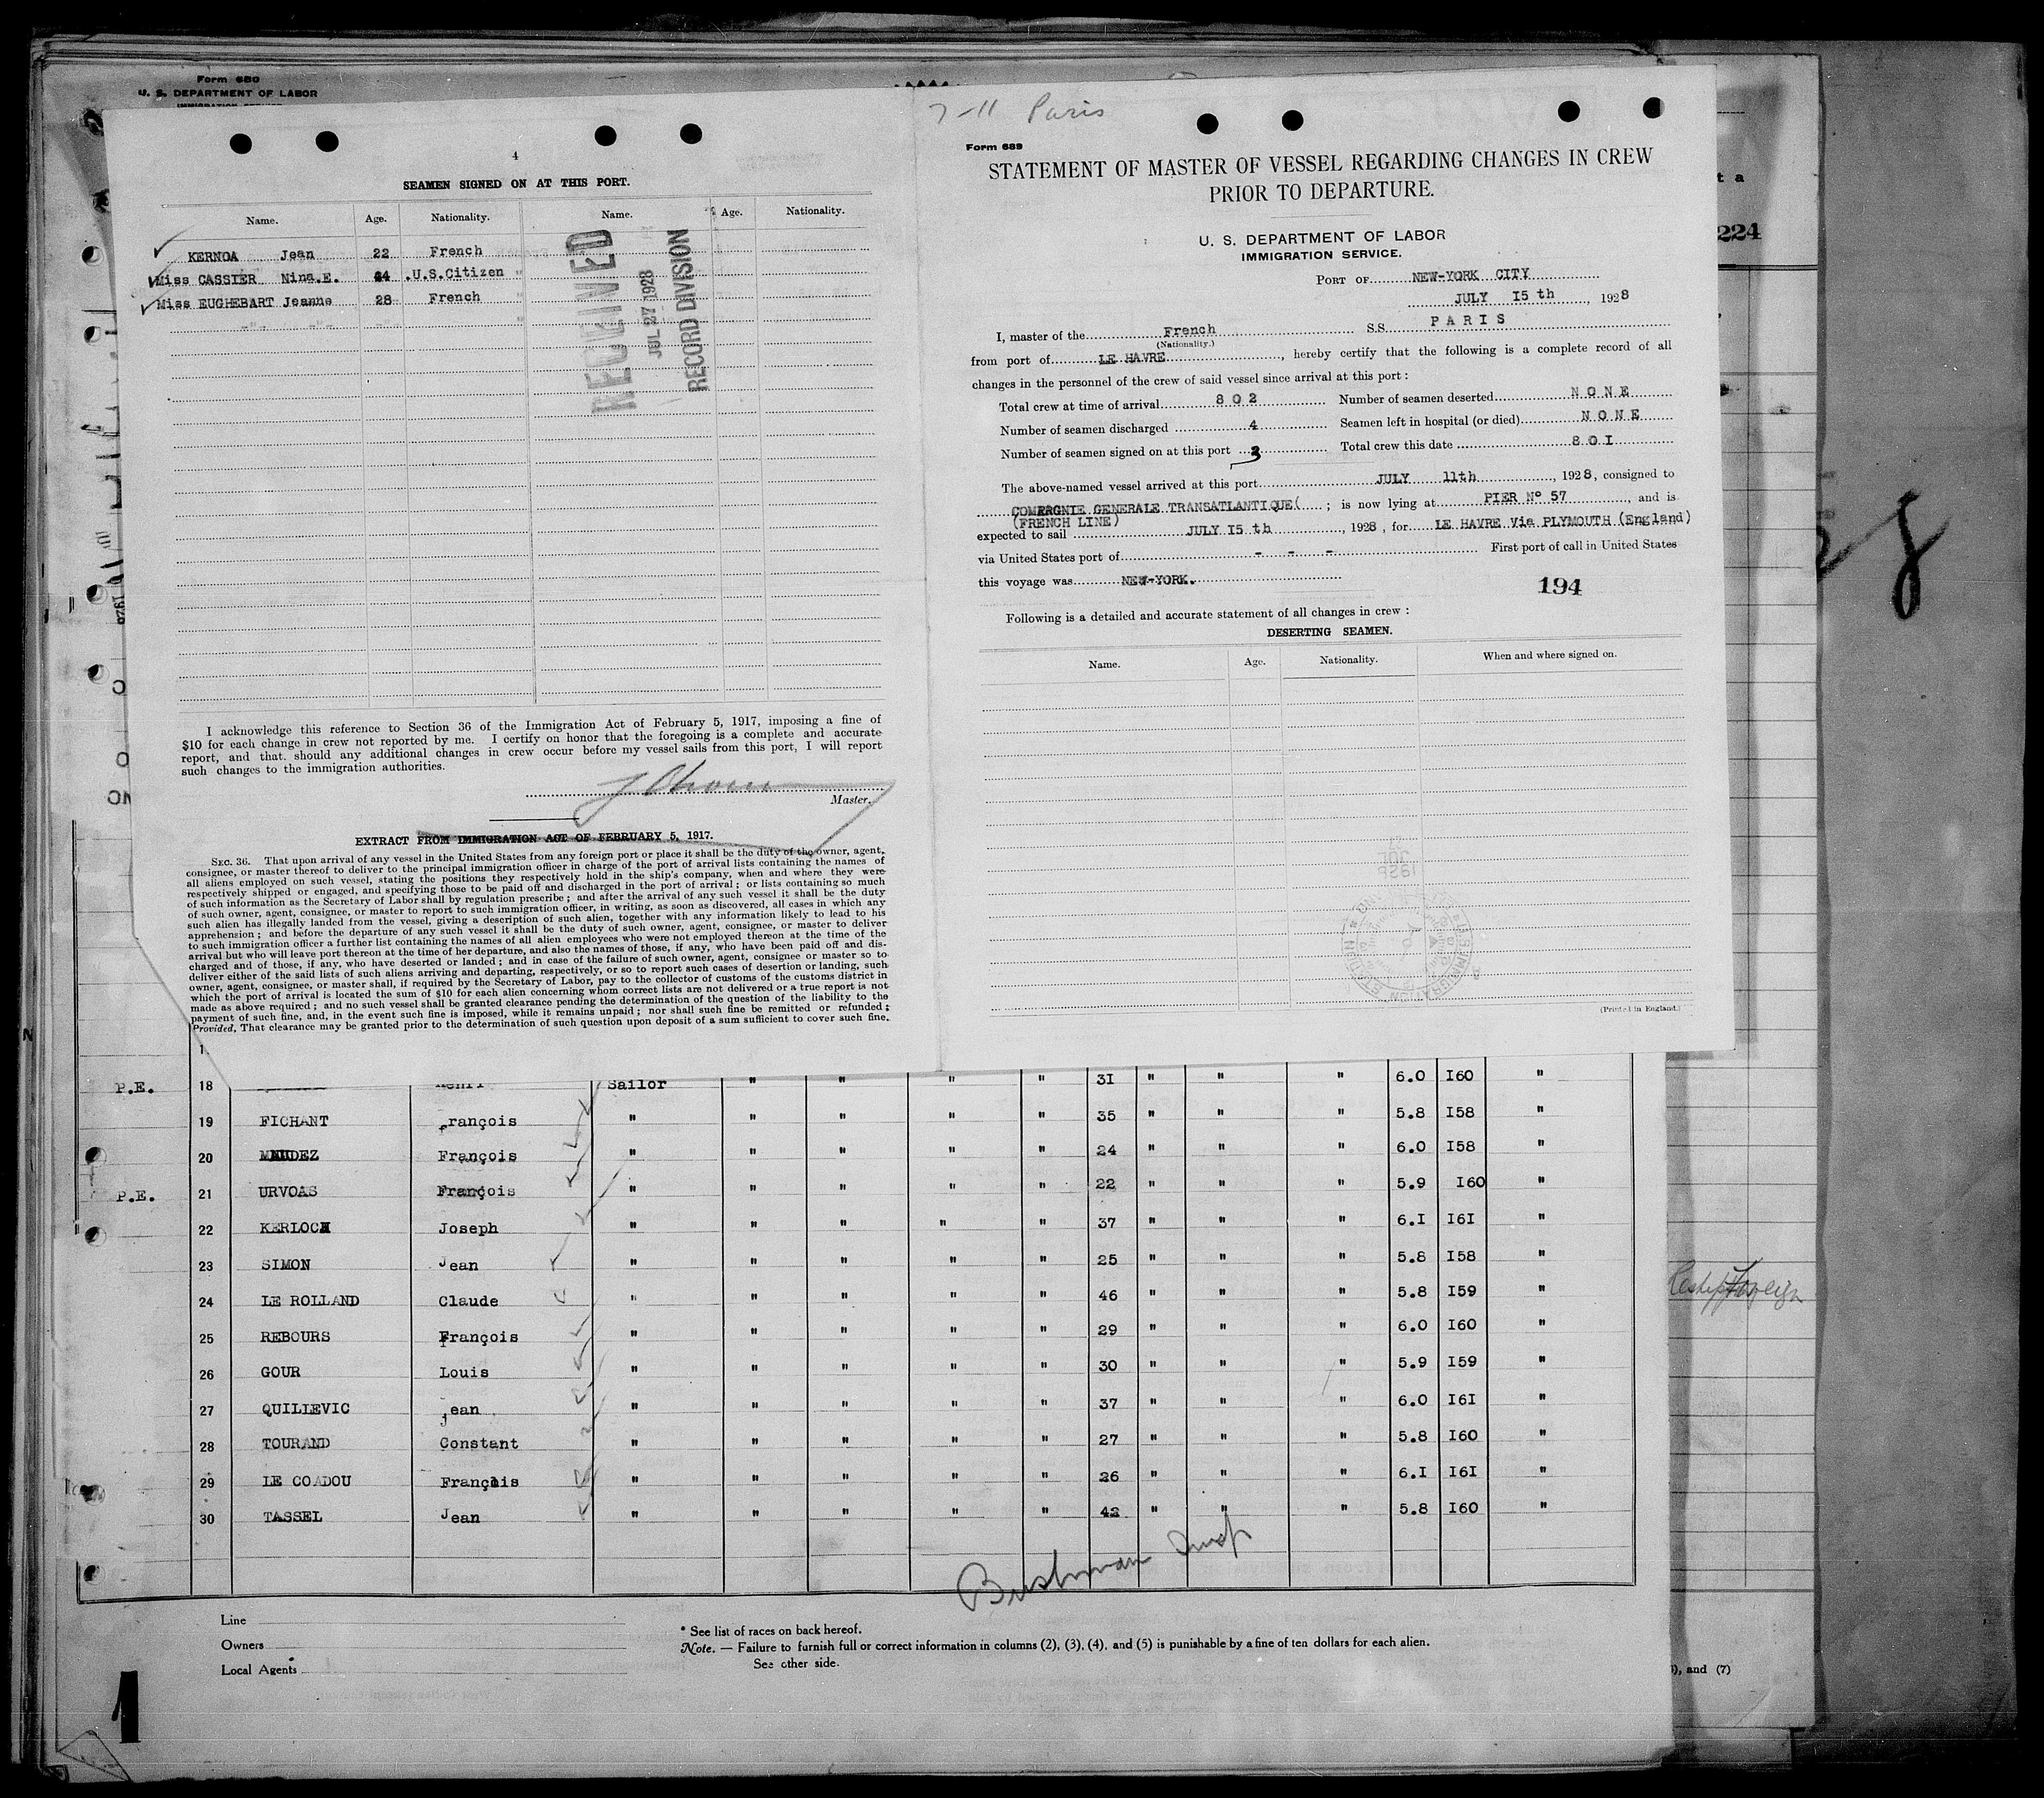 Form 680
U. S. DEPARTMENT OF LABOR
4
SEAMEN SIGNED ON AT THIS PORT.
Name. Age. Nationality. Name. Age. Nationality.
KERNOA Jean 22 French
Miss CASSIER Nina.E. 24 .U.S.Citizen "
Miss EUGHEBART Jeanne 28 French "
RECEIVED
JUL 27 1928
RECORD DIVISION
I acknowledge this reference to Section 36 of the Immigration Act of February 5, 1917, imposing a fine of
$10 for each change in crew not reported by me. I certify on honor that the foregoing is a complete and accurate
report, and that. should any additional changes in crew occur before my vessel sails from this port, I will report
such changes to the immigration authorities.
Master.
EXTRACT FROM IMMIGRATION ACT OF FEBRUARY 5, 1917.
SEC. 36. That upon arrival of any vessel in the United States from any foreign port or place it shall be the duty of the owner, agent,
consignee, or master thereof to deliver to the principal immigration officer in charge of the port of arrival lists containing the names of
all aliens employed on such vessel, stating the positions they respectively hold in the ship's company, when and where they were
respectively shipped or engaged, and specifying those to be paid off and discharged in the port of arrival; or lists containing so much
of such information as the Secretary of Labor shall by regulation prescribe; and after the arrival of any such vessel it shall be the duty
of such owner, agent, consignee, or master to report to such immigration officer, in writing, as soon as discovered, all cases in which any
such alien has illegally landed from the vessel, giving a description of such alien, together with any information likely to lead to his
apprehension; and before the departure of any such vessel it shall be the duty of such owner, agent, consignee, or master to deliver
to such immigration officer a further list containing the names of all alien employees who were not employed thereon at the time of the
arrival but who will leave port thereon at the time of her departure, and also the names of those, if any, who have been paid off and dis-
charged and of those, if any, who have deserted or landed; and in case of the failure of such owner, agent, consignee or master so to
deliver either of the said lists of such aliens arriving and departing, respectively, or so to report such cases of desertion or landing, such
owner, agent, consignee, or master shall, if required by the Secretary of Labor, pay to the collector of customs of the customs district in
which the port of arrival is located the sum of $10 for each alien concerning whom correct lists are not delivered or a true report is not
made as above required; and no such vessel shall be granted clearance pending the determination of the question of the liability to the
payment of such fine, and, in the event such fine is imposed, while it remains unpaid; nor shall such fine be remitted or refunded;
Provided, That clearance may be granted prior to the determination of such question upon deposit of a sum sufficient to cover such fine.
7-11 Paris
Form 689
STATEMENT OF MASTER OF VESSEL REGARDING CHANGES IN CREW
PRIOR TO DEPARTURE.
U. S. DEPARTMENT OF LABOR
IMMIGRATION SERVICE.
PORT OF NEW-YORK CITY
JULY 15 th, 1928
I, master of the French S.S. PARIS
(Nationality.)
from port of LE HAVRE, hereby certify that the following is a complete record of all
changes in the personnel of the crew of said vessel since arrival at this port:
Total crew at time of arrival 802 Number of seamen deserted NONE
Number of seamen discharged 4 Seamen left in hospital (or died) NONE
Number of seamen signed on at this port 3 Total crew this date 80I
The above-named vessel arrived at this port JULY 11th, 1928, consigned to
COMPAGNIE GENERALE TRANSATLANTIQUE( ; is now lying at PIER Nº 57, and is
(FRENCH LINE)
expected to sail JULY I5 th, 1928, for LE HAVRE Via PLYMOUTH (England)
via United States port of - - - First port of call in United States
this voyage was NEW-YORK.
194
Following is a detailed and accurate statement of all changes in crew:
DESERTING SEAMEN.
Name. Age. Nationality. When and where signed on.
(Printed in England.)
t a
224
P.E. 18 Sailor " " " " 3I " " " 6.0 I60 "
19 FICHANT François " " " " " 35 " " " 5.8 I58 "
20 MAUDEZ François " " " " " 24 " " " 6.0 I58 "
P.E. 21 URVOAS François " " " " " 22 " " " 5.9 I60 "
22 KERLOCH Joseph " " " " " 37 " " " 6.I I6I "
23 SIMON Jean " " " " " 25 " " " 5.8 I58 "
24 LE ROLLAND Claude " " " " " 46 " " " 5.8 I59 "
25 REBOURS François " " " " " 29 " " " 6.0 I60 "
26 GOUR Louis " " " " " 30 " " " 5.9 I59 "
27 QUILLEVIC jean " " " " " 37 " " " 6.0 I6I "
28 TOURAND Constant " " " " " 27 " " " 5.8 I60 "
29 LE COADOU François " " " " " 26 " " " 6.I I6I "
30 TASSEL Jean " " " " " 42 " " " 5.8 I60 "
Bushman Insp
Line
Owners
Local Agents
* See list of races on back hereof.
Note. — Failure to furnish full or correct information in columns (2), (3), (4), and (5) is punishable by a fine of ten dollars for each alien.
See other side.
, and (7)
1